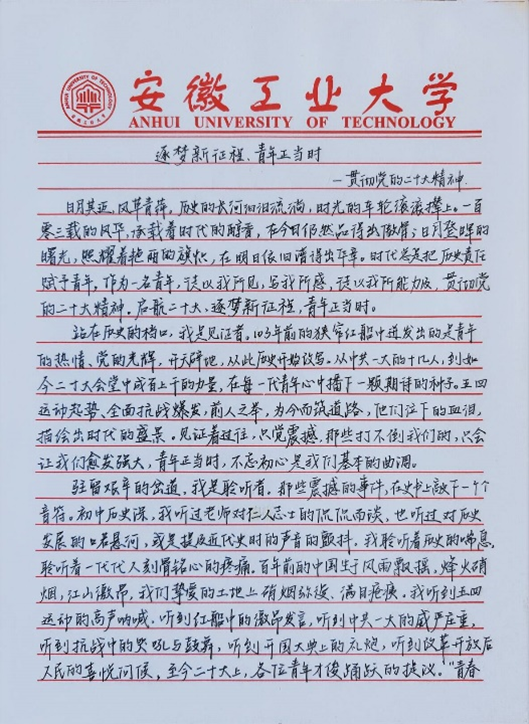 安徽工业大学
ANHUI UNIVERSITY OF TECHNOLOGY
逐梦新征程、青年正当时
—贯彻党的二十大精神
日月其迈,风华青葙,历史的长河汩汩流淌,时光的车轮滚滚撵上。一百
零三载的风华,承载着时代的醇香,在今日仍然品得出
曙光,照耀着艳丽的旗帜,在明日依旧谱得出平章。时代总是把历史责任
赋予青年,作为一名青年,徒以我所见,写我所感,徒以我所能力及,贯彻党
的二十大精神。启航二十大、逐梦新征程,青年正当时。
站在历史的档口,我是见证者。103年前的狭窄红船中迸发出的是青年
的热情、党的光辉,开天辟地,从此历史开始改写。从中共一大的十几人,到如
今二十大会堂中成百上千的力量,在每一代青年心中播下一颗期待的种子。五四
运动态势、全面抗战爆发,前人之举,为今而筑道路,他们注下的血泪,
描绘出时代的盛景。见证着过往,只觉震撼,那些打不倒我们的,只会
让我们愈发强大,青年正当时,不忘初心是我们基本的曲调。
驻留艰辛的岔道,我是聆听者。那些震撼的事件,在史书上敲下一个个
音符。初中历史课,我听过老师对仁人志士的侃侃而谈,也听过对历史
发展的口若悬河,或是提及近代史时的声音的颤抖,我聆听着历史的喘息,
聆听着一代代人刻骨铭心的疼痛。百年前的中国生于风雨飘摇,烽火硝
烟,江山激昂,我们挚爱的土地上硝烟弥漫、满目疮痍。我听到五四
运动的高声呐喊,听到红船中的激昂发言,听到中共一大的威严庄重,
听到抗战中的哭吼与鼓舞,听到开国大典上的礼炮,听到改革开放后
人民的喜悦问候,至今二十大上,各位青年才俊踊跃的提议。“青春